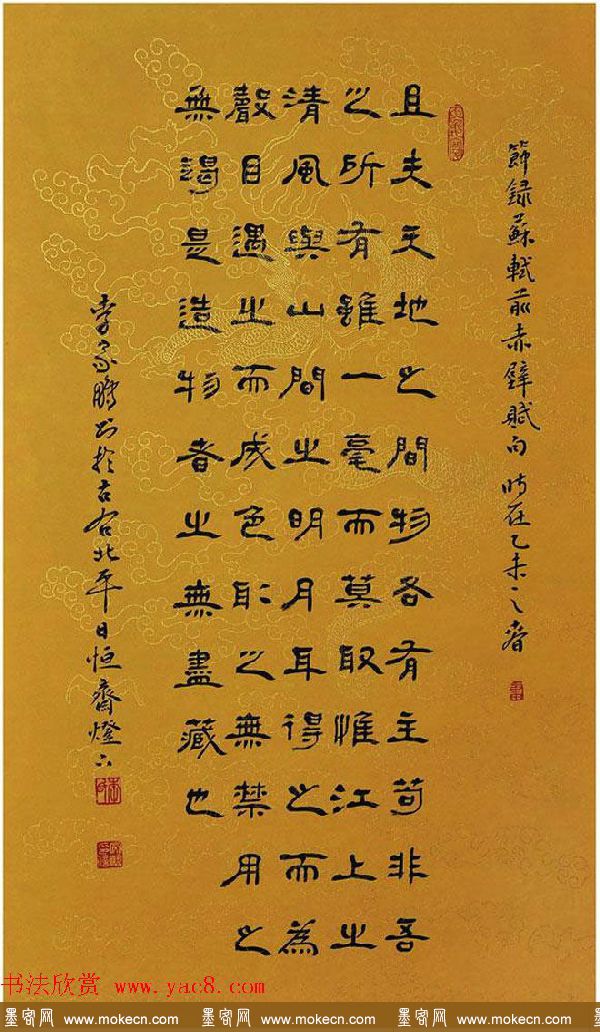 節録蘇軾前赤壁賦句 時在乙未之春
且夫天地之間物各有主苟非吾
之所有雖一毫而莫取惟江上之
清風與山間之明月耳得之而為
聲目遇之而成色取之無禁用之
無竭是造物者之無盡藏也
李鵬書於古台北平日恒齋燈下
书法欣赏 www.yac8.com
墨客网 www.mokecn.com 墨客网 www.mokecn.com 墨客网 www.mokecn.com